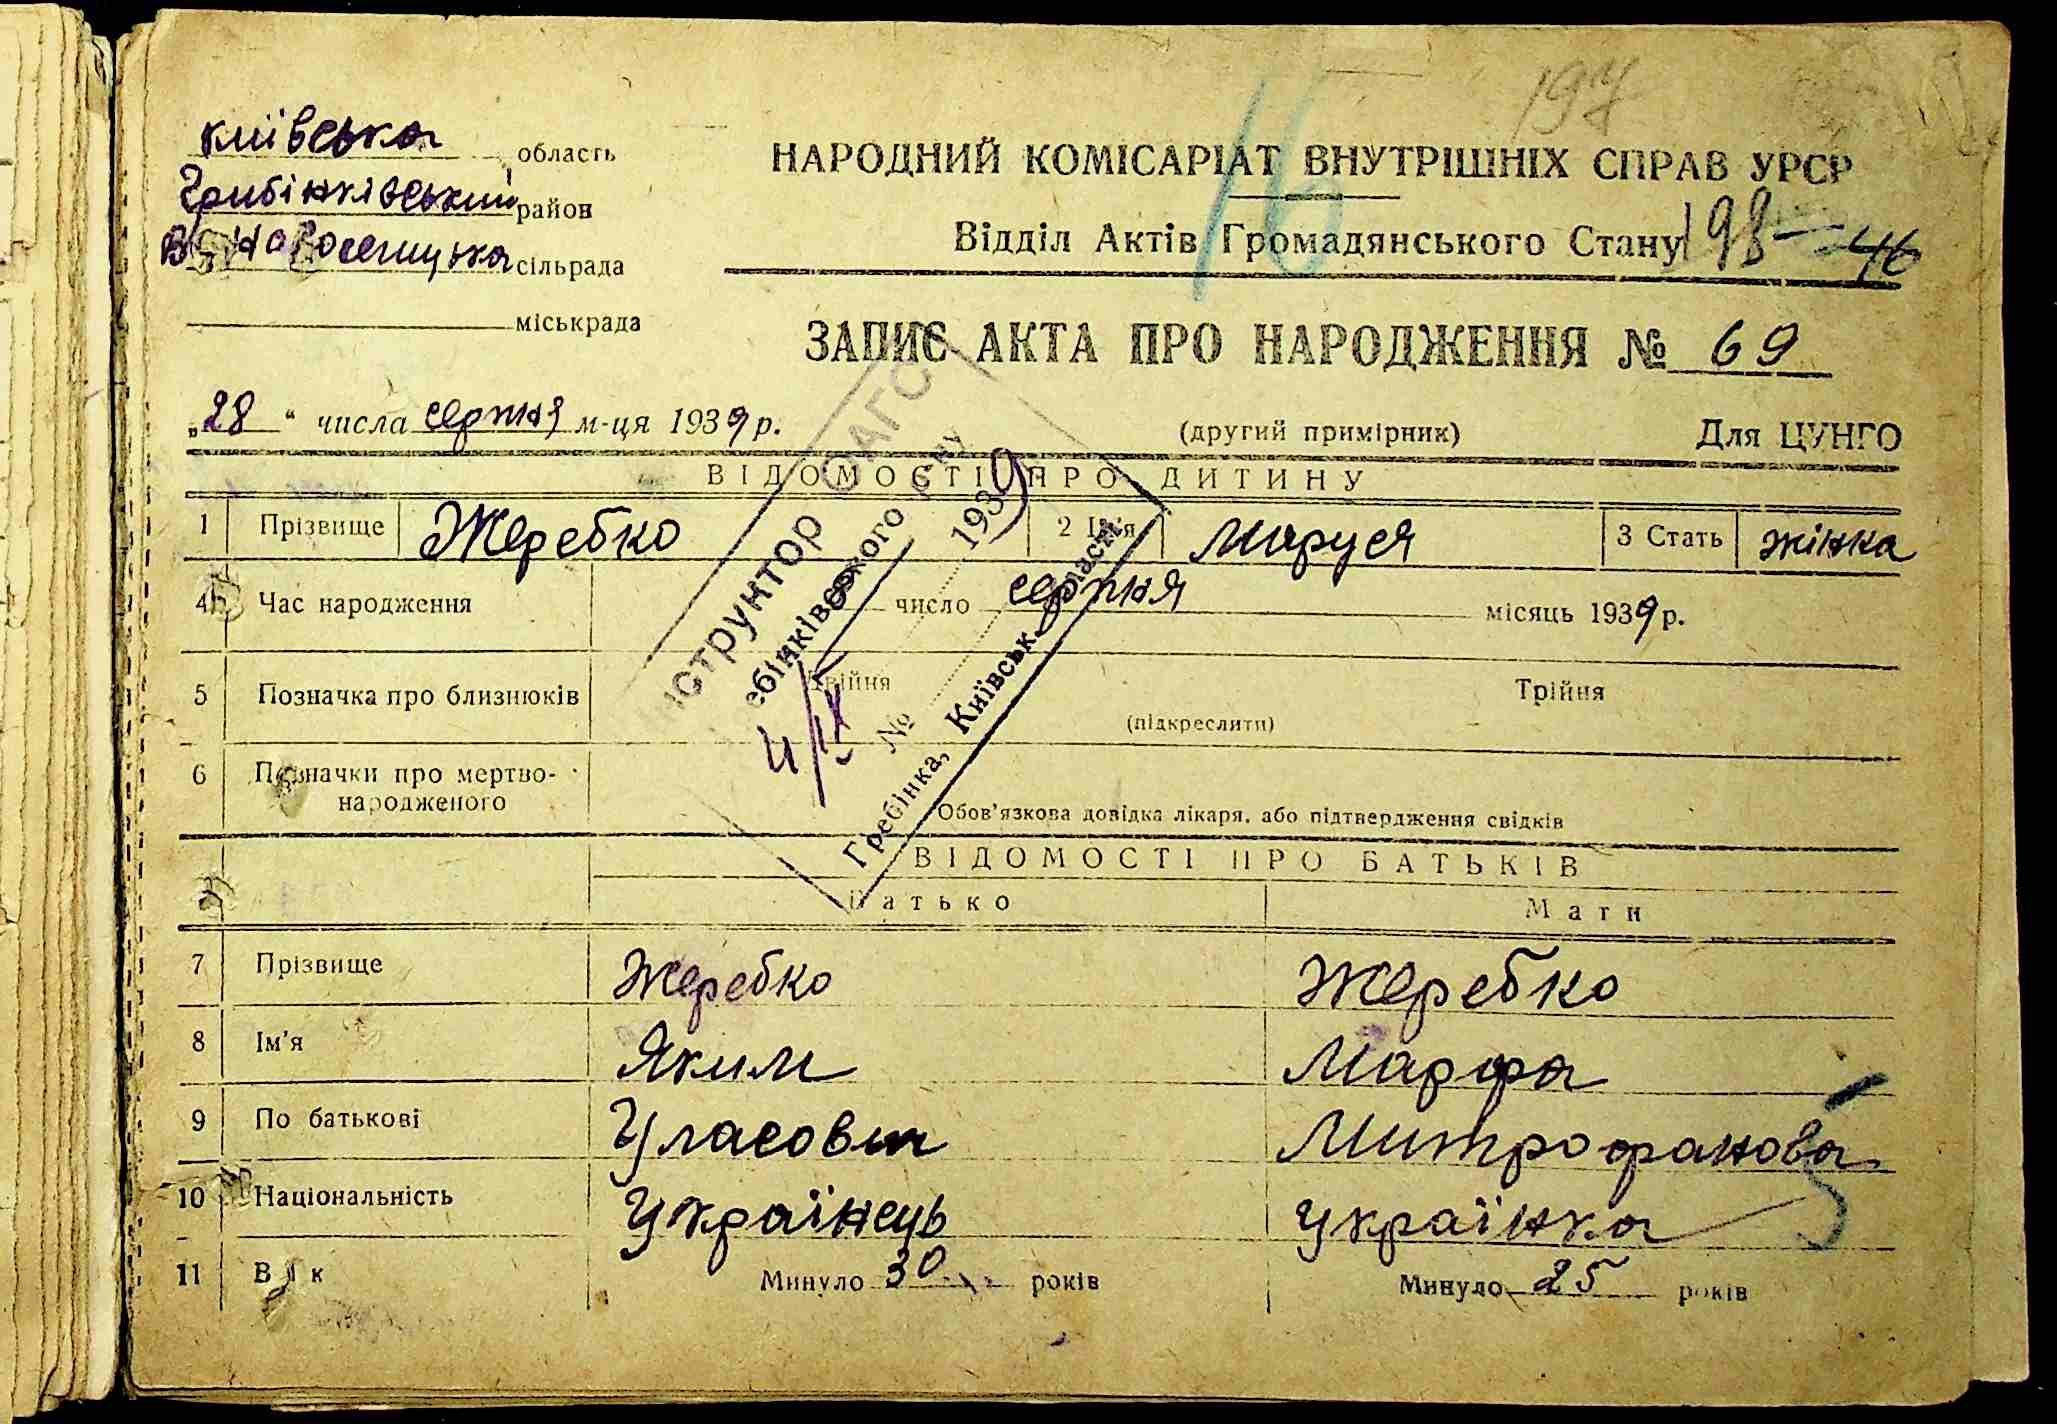 197
Київська область
НАРОДНИЙ КОМІСАРІАТ ВНУТРІШНІХ СПРАВ УРСР
16
Грибінківський район
Відділ Актів Громадянського Стану 198 46
сільрада
міськрада
ЗАПИС АКТА ПРО НАРОДЖЕННЯ № 69
„28“ числа серпня м-ця 1939 р.
(другий примірник) Для ЦУНГО
ВІДОМОСТІ ПРО ДИТИНУ
1 Прізвище Жеребко 2 Ім'я Маруся 3 Стать жінка
4 Час народження число серпня місяць 1939 р.
5 Позначка про близнюків Двійня Трійня
(підкреслити)
6 Позначки про мертво-
народженого
Обов'язкова довідка лікаря, або підтвердження свідків
ВІДОМОСТІ ПРО БАТЬКІВ
Батько Мати
7 Прізвище Жеребко Жеребко
8 Ім'я Яким Марфа
9 По батькові Уласович Митрофанова
10 Національність Українець українка
11 Вік Минуло 30 років Минуло 25 років
нструктор ЗАГС
ебінківського р-ну
4/ІХ № 1939
Гребінка, Київськ. області